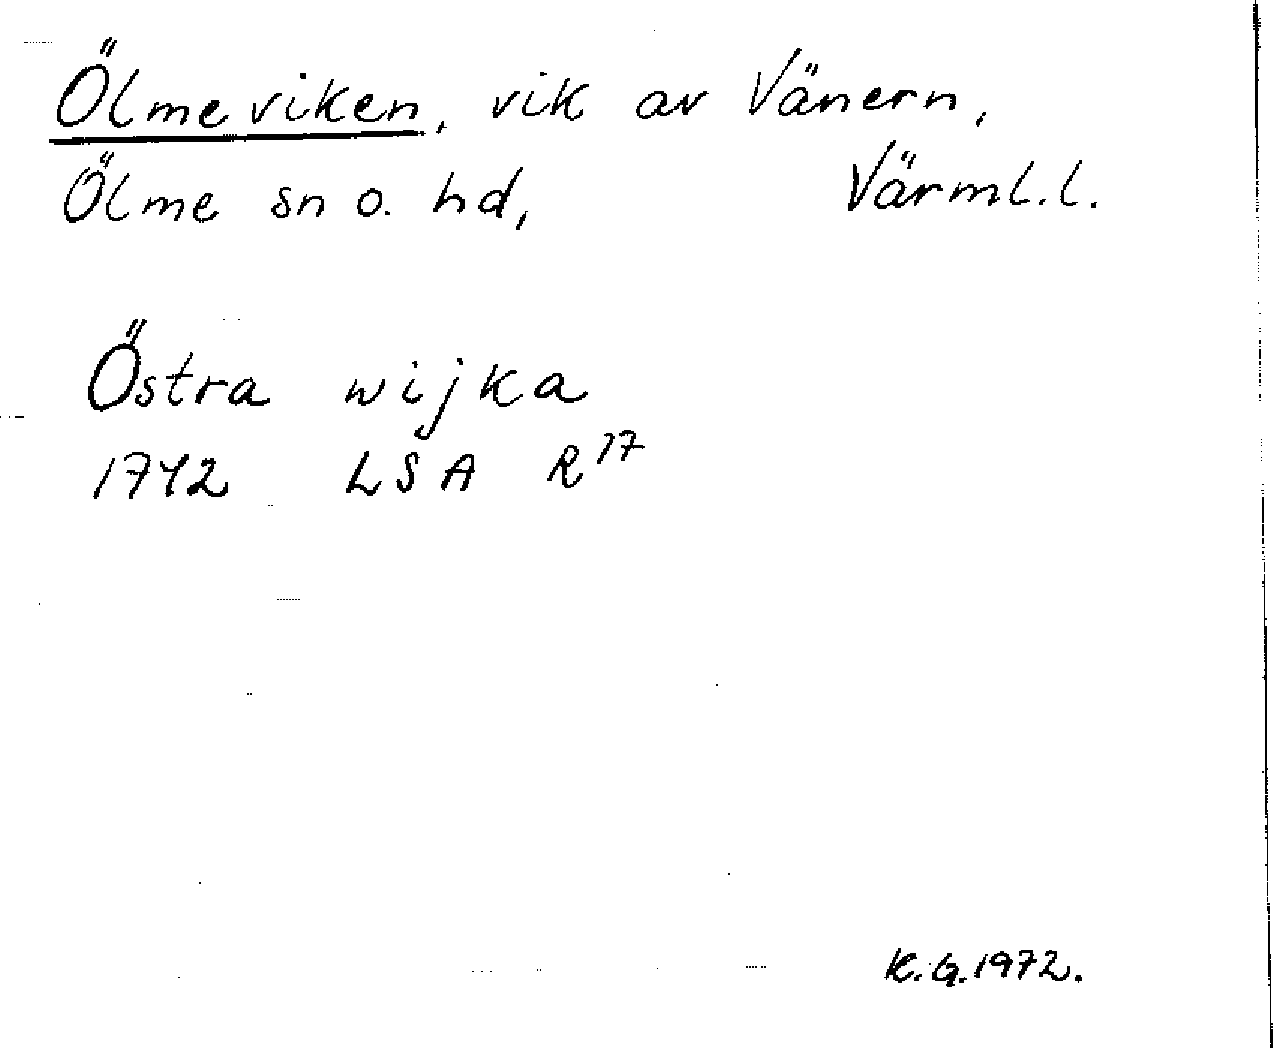 Ölmeviken, vik av Vänern,
Ölme sn o. hd, Värml.l.
Östra wijka
1742 LSA R17
K.G.1972.